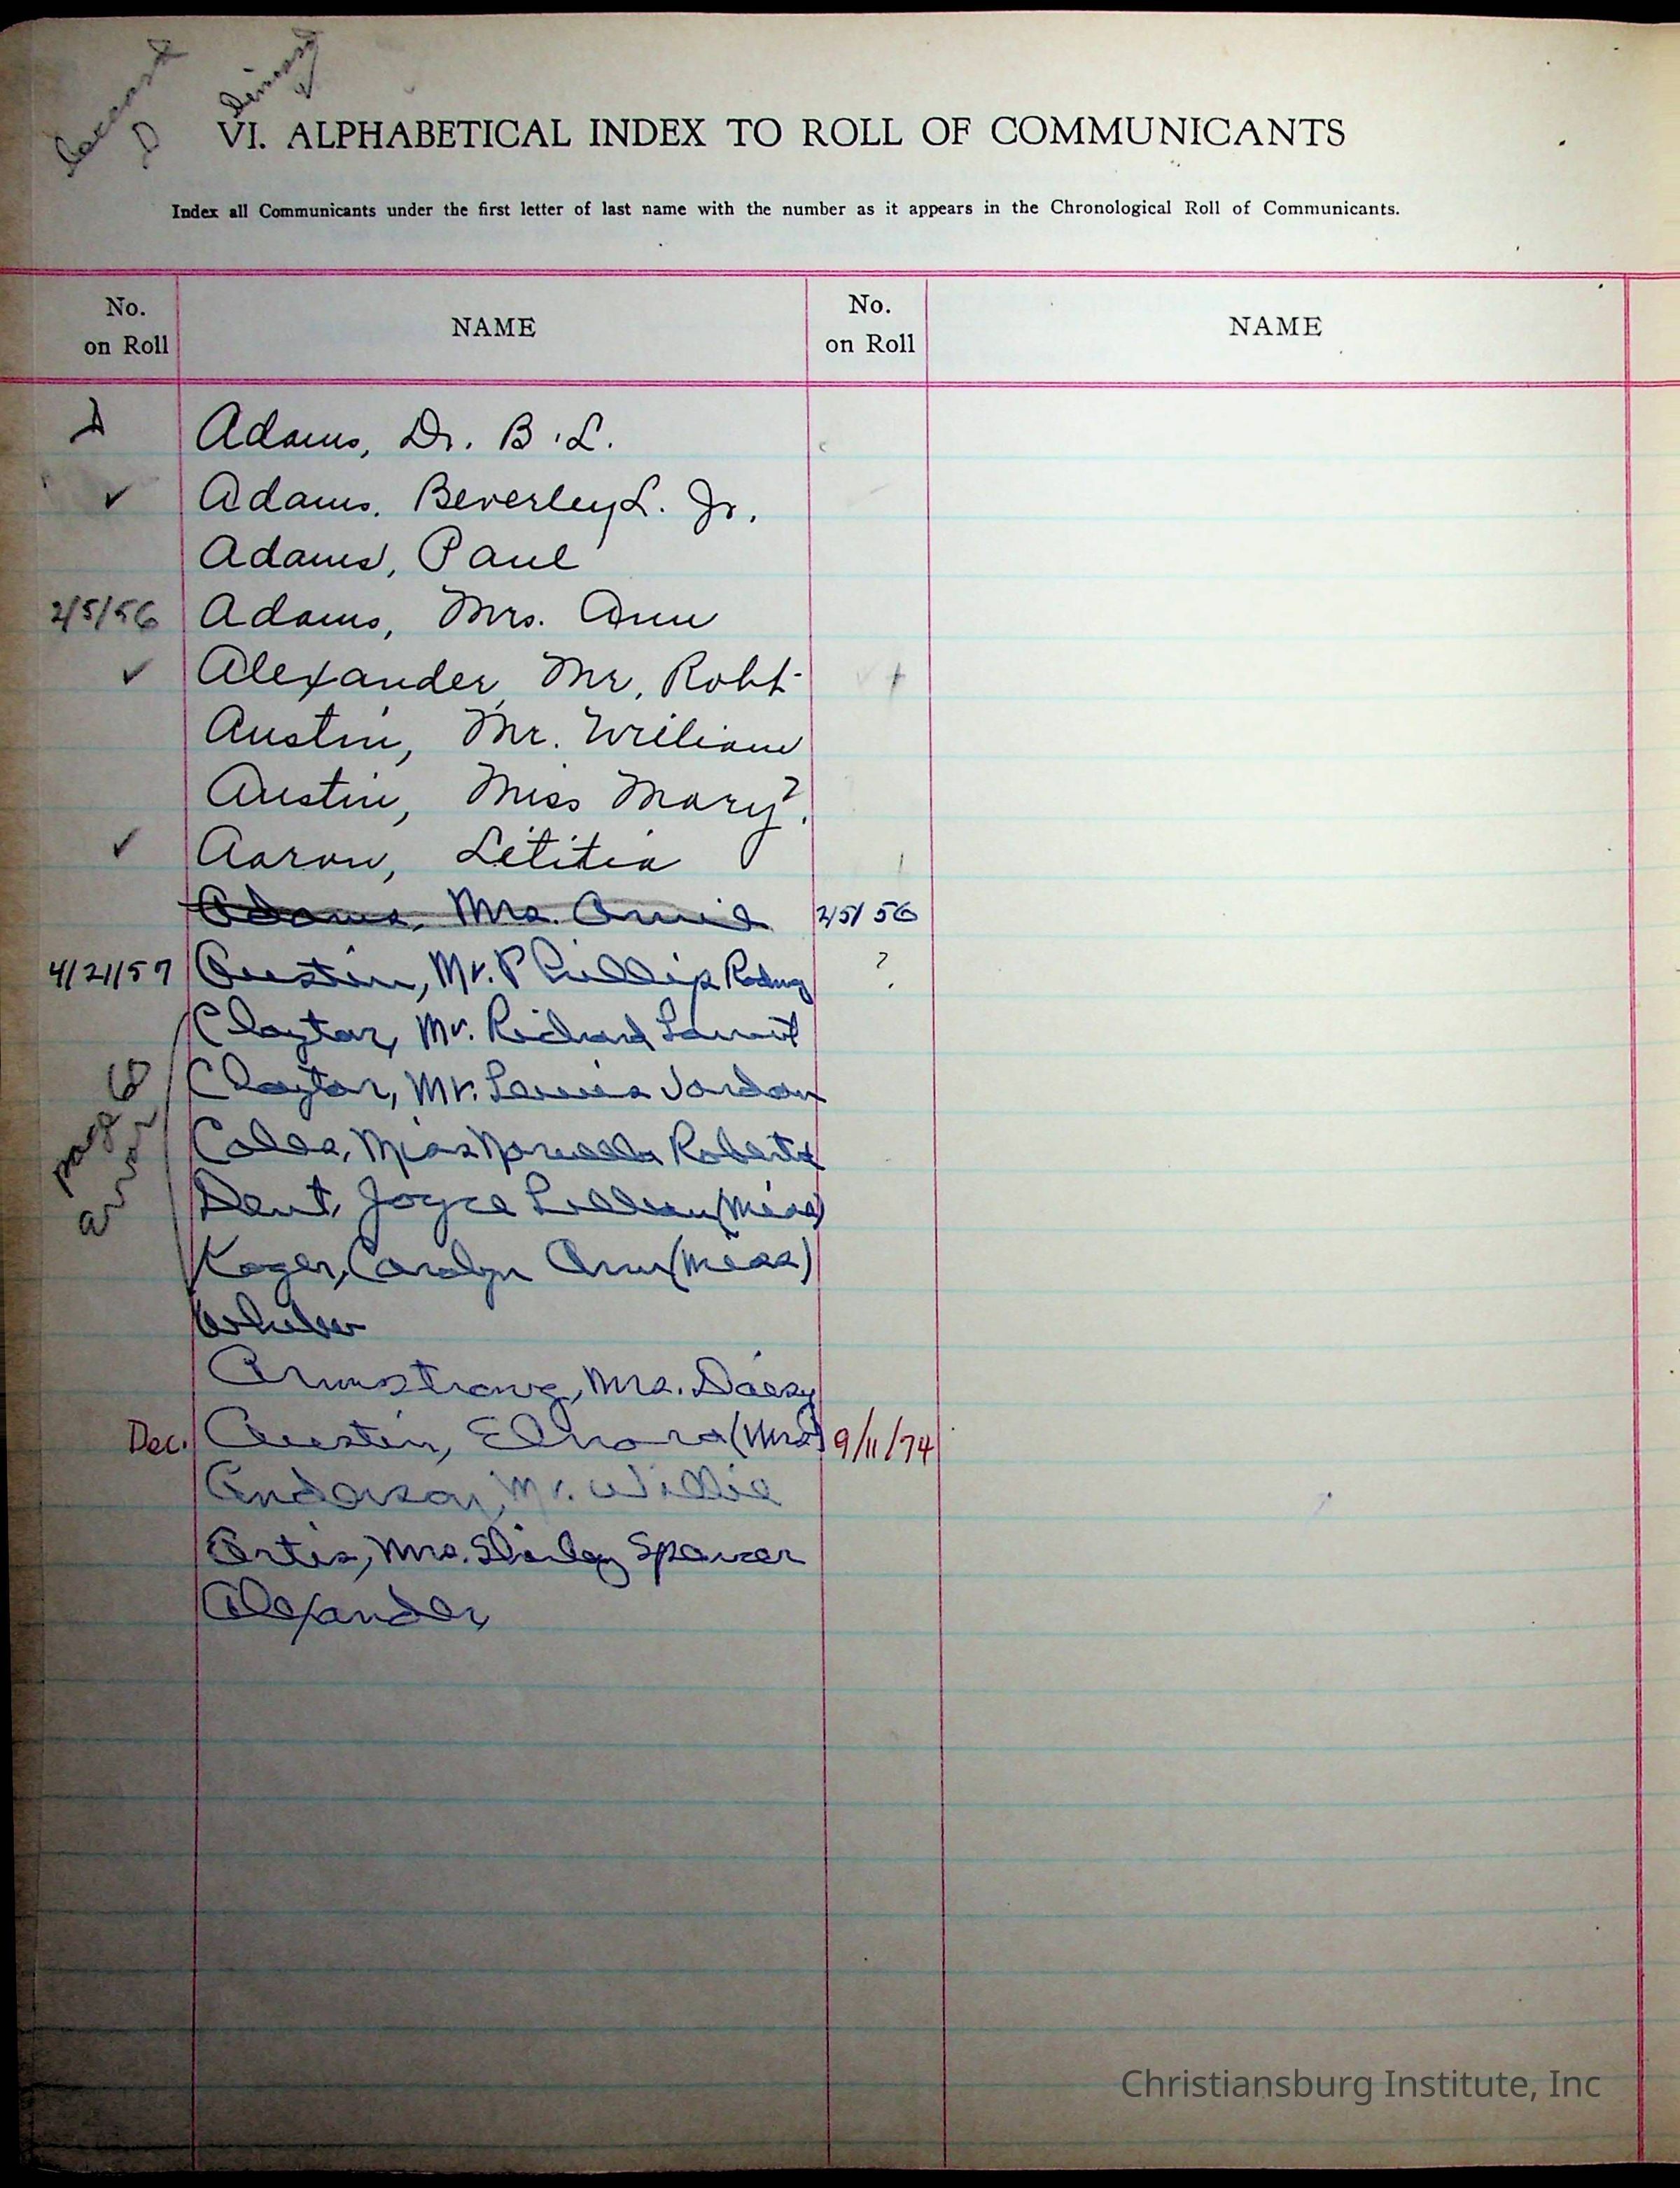 D
VI. ALPHABETICAL INDEX TO ROLL OF COMMUNICANTS
Index all Communicants under the first letter of last name with the number as it appears in the Chronological Roll of Communicants.
No. on Roll NAME No. on Roll NAME
Adams, Dr. B. L.
✓ Adams, Beverley L. Jr.
Adams, Paul
2/5/56 Adams, Mrs. Ann
✓ Alexander, Mr. Robt.
Austin, Mr. William
Austin, Miss Mary?
✓ Aaron, Letitia
Adams, Mrs. Annie 2/5/56
4/21/57 Austin, Mr. Phillip Rodney ?
Claytor, Mr. Richard
Claytor, Mr. Lewis Jordan
Coles, Miss Roberta
Dent, Joyce Lillian (Miss)
Koger, Carolyn Ann (Miss)
page 6
error
Armstrong, Mrs. Daisy
Dec. Austin, Elnora (Mrs) 9/11/74
Anderson, Mr. Willie
Artis, Mrs. Shirley Spencer
Alexander,
Christiansburg Institute, Inc